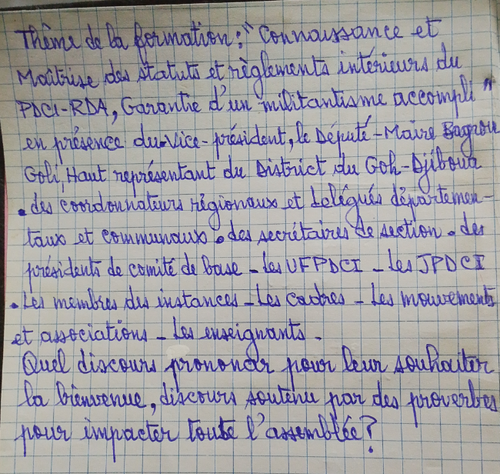 Thème de la formation : " Connaissance et
Maîtrise des statuts et règlements intérieurs du
PDCI-RDA, Garantie d'un militantisme accompli "
en présence du Vice-président, le Député-Maire Bagrou
Goli, Haut représentant du District du Goh-Djiboua
. des coordonnateurs régionaux et délégués départemen-
taux et communaux . des secrétaires de section . des
présidents de comité de base - les UFPDCI - les JPDCI
. Les membres des instances - Les cadres - Les mouvements
et associations - Les enseignants.
Quel discours prononcer pour leur souhaiter
la bienvenue, discours soutenu par des proverbes
pour impacter toute l'assemblée ?